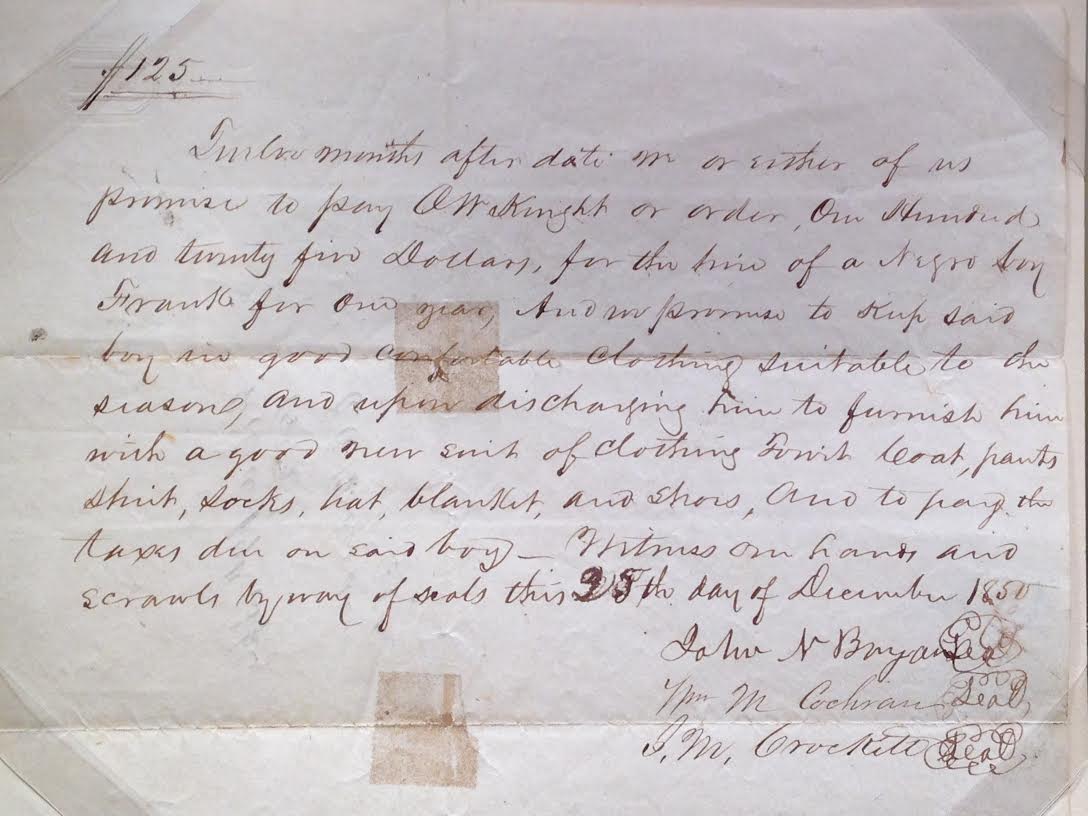 $125
Twelve months after date we or either of us
promise to pay O W Knight or order, One Hundred
and twenty five Dollars, for the hire of a Negro boy
Frank for one year, And we promise to Keep said
boy in good comfortable clothing suitable to the
season, and upon discharging him to furnish him
with a good new suit of clothing Towit Coat, pants
shirt, socks, hat, blanket, and shoes, And to pay the
taxes due on said boy — Witness our hands and
scrawls by way of seals this 25th day of December 1850
John N Bryan Seal
Wm M Cochran Seal
J. M. Crockett Seal